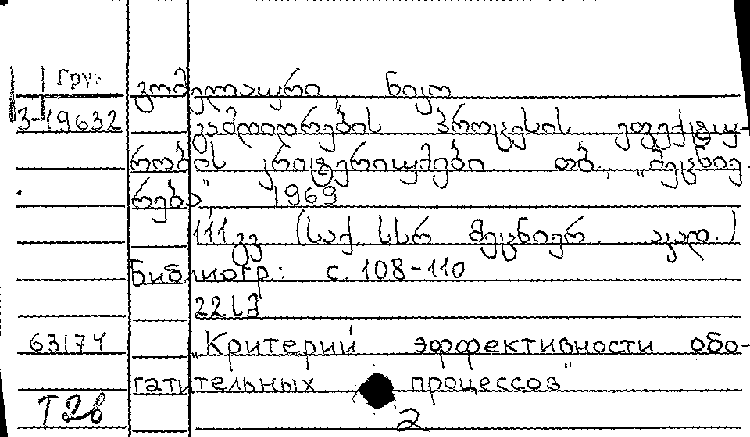 Гру.
გომელაური ნიკო
3-19632 გამდიდრების პროცესის ეფექტუ-
რობის კრიტერიუმები თბ., „მეცნიე-
რება“, 1969
111 გვ (საქ. სსრ მეცნიერ. აკად.)
Библиогр: с. 108-110
22 L7
63174 „Критерий эффективности обо-
гатительных процессов"
T2в 2